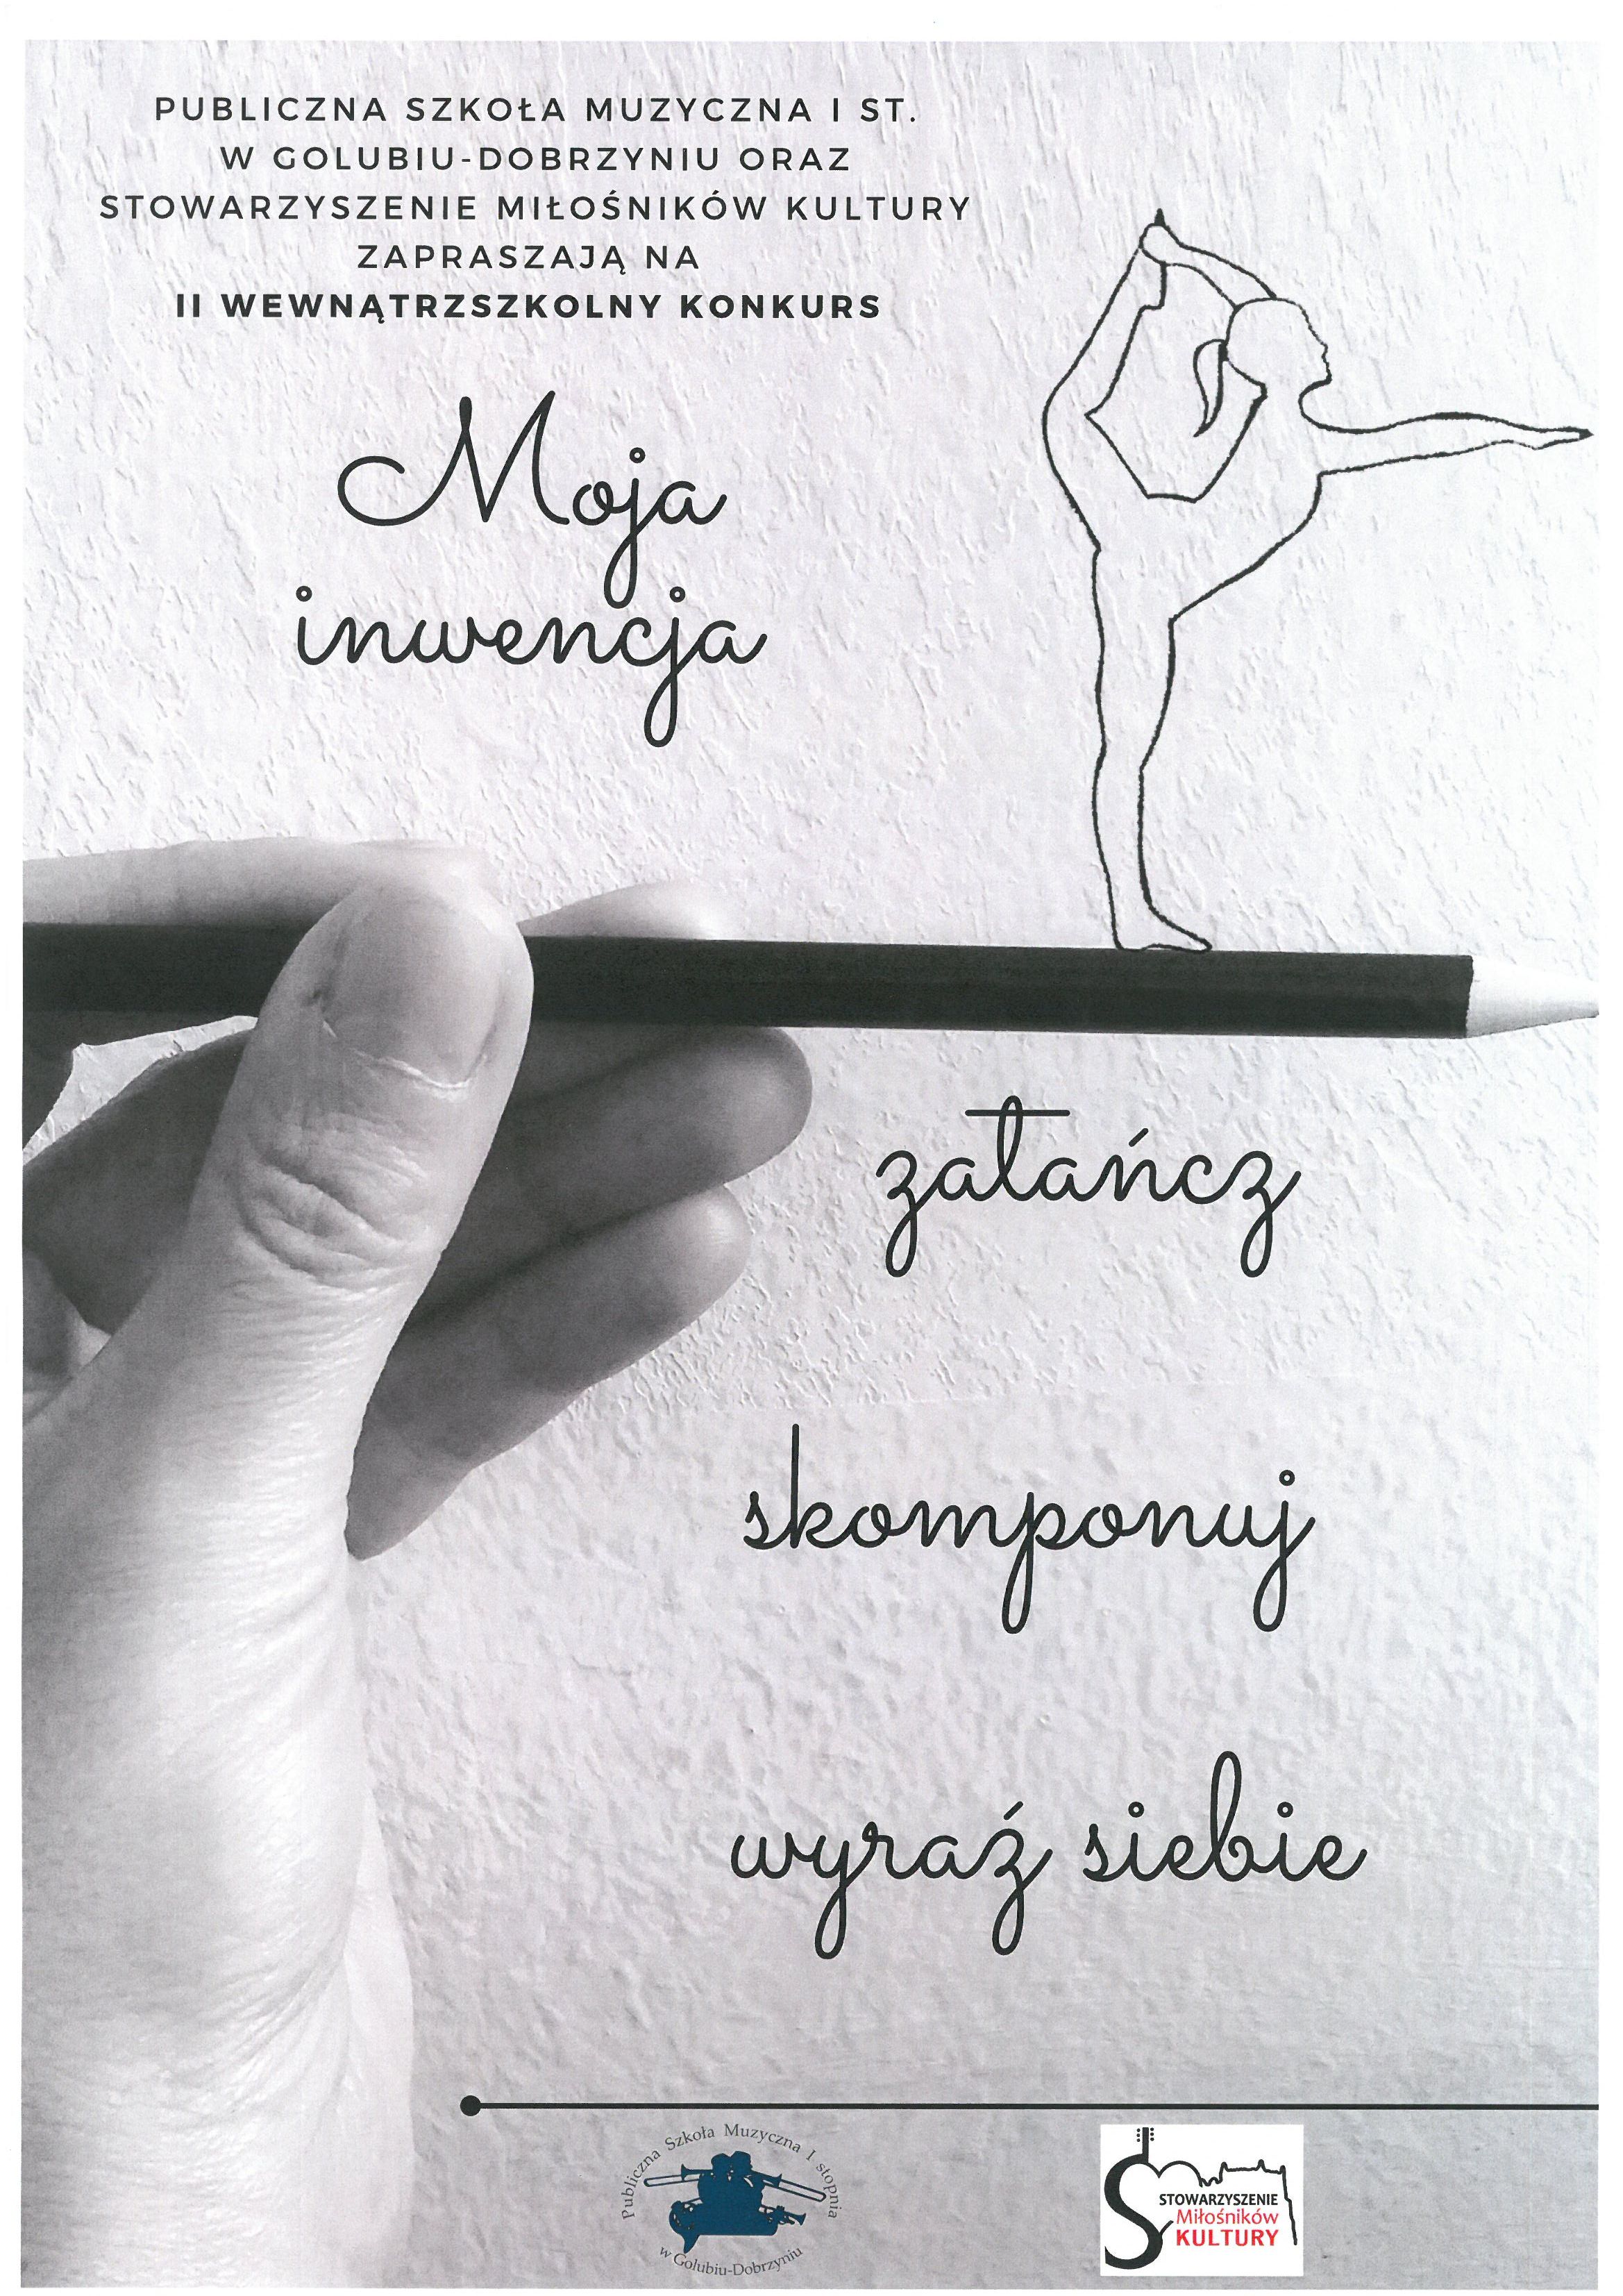 PUBLICZNA SZKOŁA MUZYCZNA I ST.
W GOLUBIU-DOBRZYNIU ORAZ
STOWARZYSZENIE MIŁOŚNIKÓW KULTURY
ZAPRASZAJĄ NA
II WEWNĄTRZSZKOLNY KONKURS
Moja
inwencja
zatańcz
skomponuj
wyraź siebie
Publiczna Szkoła Muzyczna I stopnia
w Golubiu-Dobrzyniu
STOWARZYSZENIE
Miłośników
KULTURY